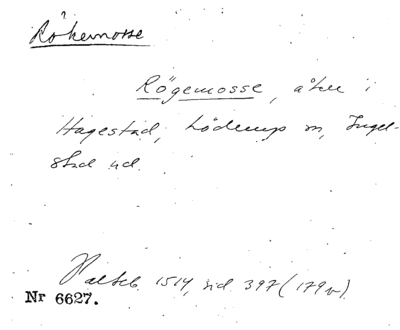 Rökemosse
Rögemosse, åker i
Hagestad, Löderups sn, Ingel-
stad hd.
1514, sid 397 (179v).
Nr 6627.